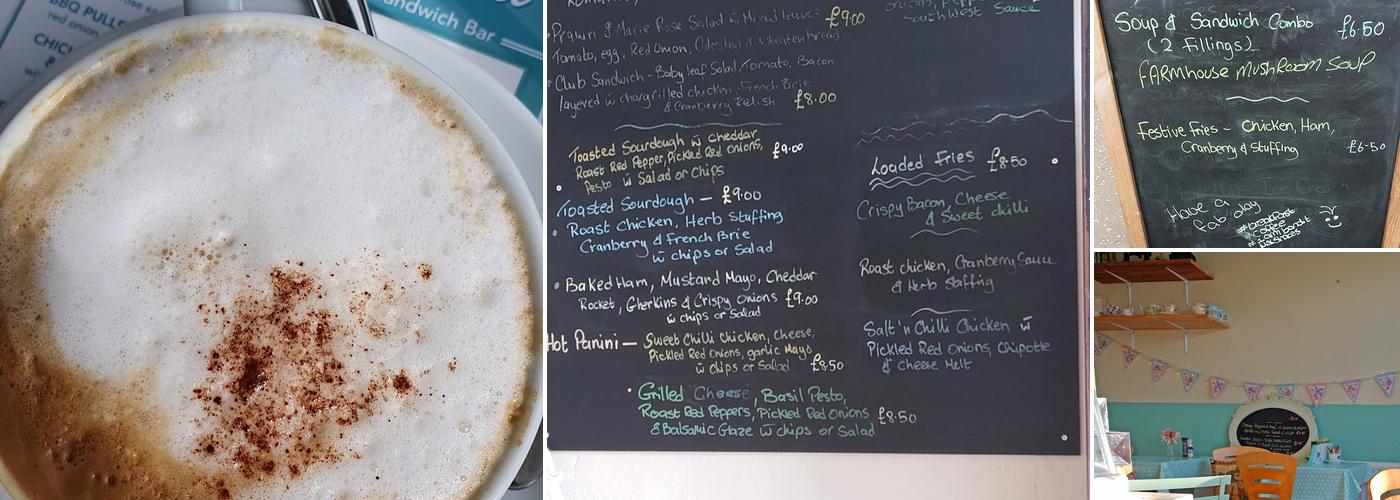 andwich Bar
BBQ PULLE
red onion
CHIC
Prawn & Marie Rose Salad w̄ Mixed leaves £9.00
Tomato, egg, Red Onion, Celestial & wheaten bread
Club Sandwich - Baby leaf Salad, Tomato, Bacon
layered w̄ chargrilled chicken, French Brie
& Cranberry Relish £8.00
Toasted Sourdough w̄ Cheddar
Roast Red Pepper, Pickled Red Onions, £9.00
Pesto w̄ Salad or Chips
Toasted Sourdough — £9.00
• Roast Chicken, Herb Stuffing
Cranberry & French Brie
w̄ chips or Salad
• Baked Ham, Mustard Mayo, Cheddar
Rocket, Gherkins & Crispy Onions £9.00
w̄ chips or Salad
Hot Panini — Sweet Chilli Chicken, Cheese,
Pickled Red Onions, garlic Mayo
w̄ chips or Salad £8.50
• Grilled Cheese, Basil Pesto,
Roast Red Peppers, Pickled Red Onions £8.50
& Balsamic Glaze w̄ chips or Salad
South West Sauce
Loaded Fries £8.50
Crispy Bacon, Cheese
& Sweet chilli
Roast chicken, Cranberry Sauce
& Herb Stuffing
Salt 'n Chilli Chicken w̄
Pickled Red Onions, Chipotle
& Cheese Melt
Soup & Sandwich Combo £6.50
(2 Fillings)
FARMhouse MushRoom Soup
Festive Fries - Chicken, Ham,
Cranberry & Stuffing £6-50
Have a
fab day
#breakfast
#Coffee